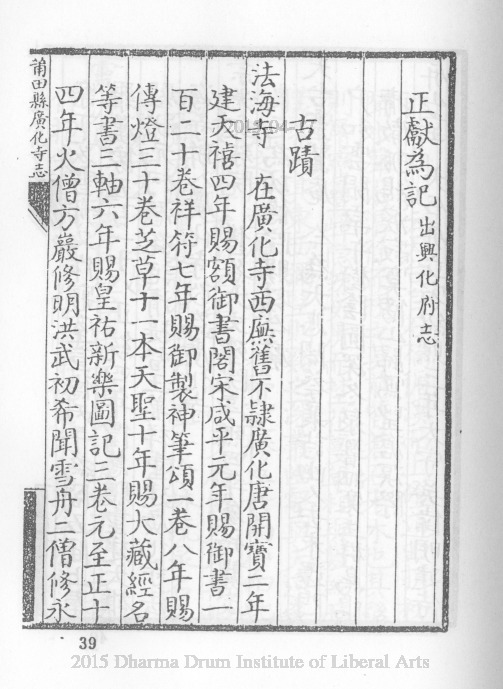 正獻為記出興化府志
古蹟
法海寺 在廣化寺西廡舊不隷廣化唐開寶二年
建天禧四年賜額御書閣宋咸平元年賜御書一
百二十卷祥符七年賜御製神筆頌一卷八年賜
傳燈三十卷芝草十一本天聖十年賜大藏經名
等書三軸六年賜皇祐新樂圖記三卷元至正十
四年火僧方巖修明洪武初希聞雪舟二僧修永
莆田縣廣化寺志
39
2015 Dharma Drum Institute of Liberal Arts